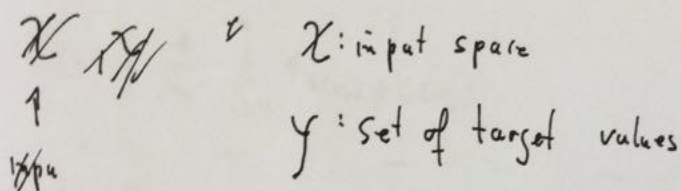 𝒳: input space
𝒴: set of target values